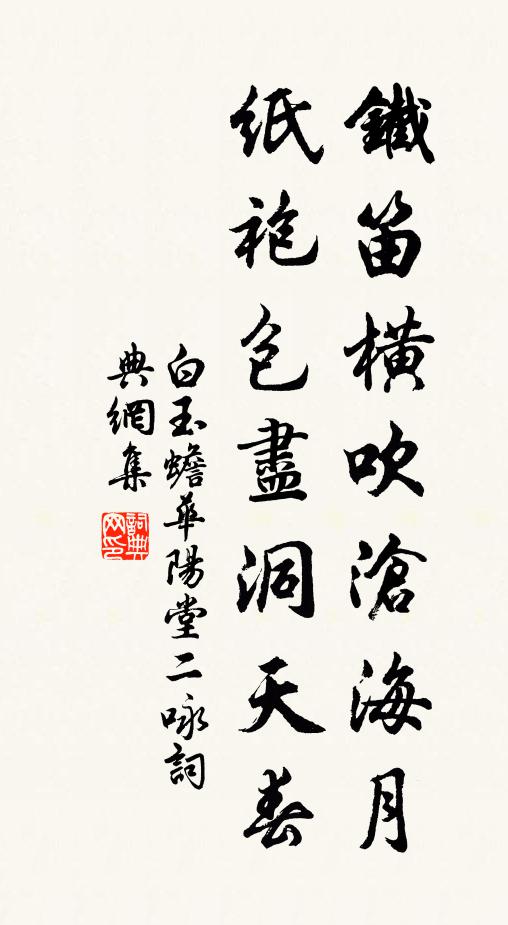 鐵笛橫吹滄海月
紙袍包盡洞天春
白玉蟾華陽堂二咏詞
典網集
詞典